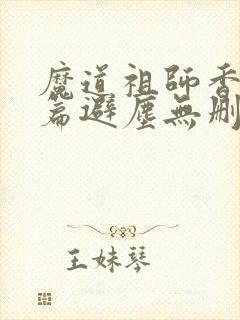 魔道祖師香
篇避塵無刪
王妹琴